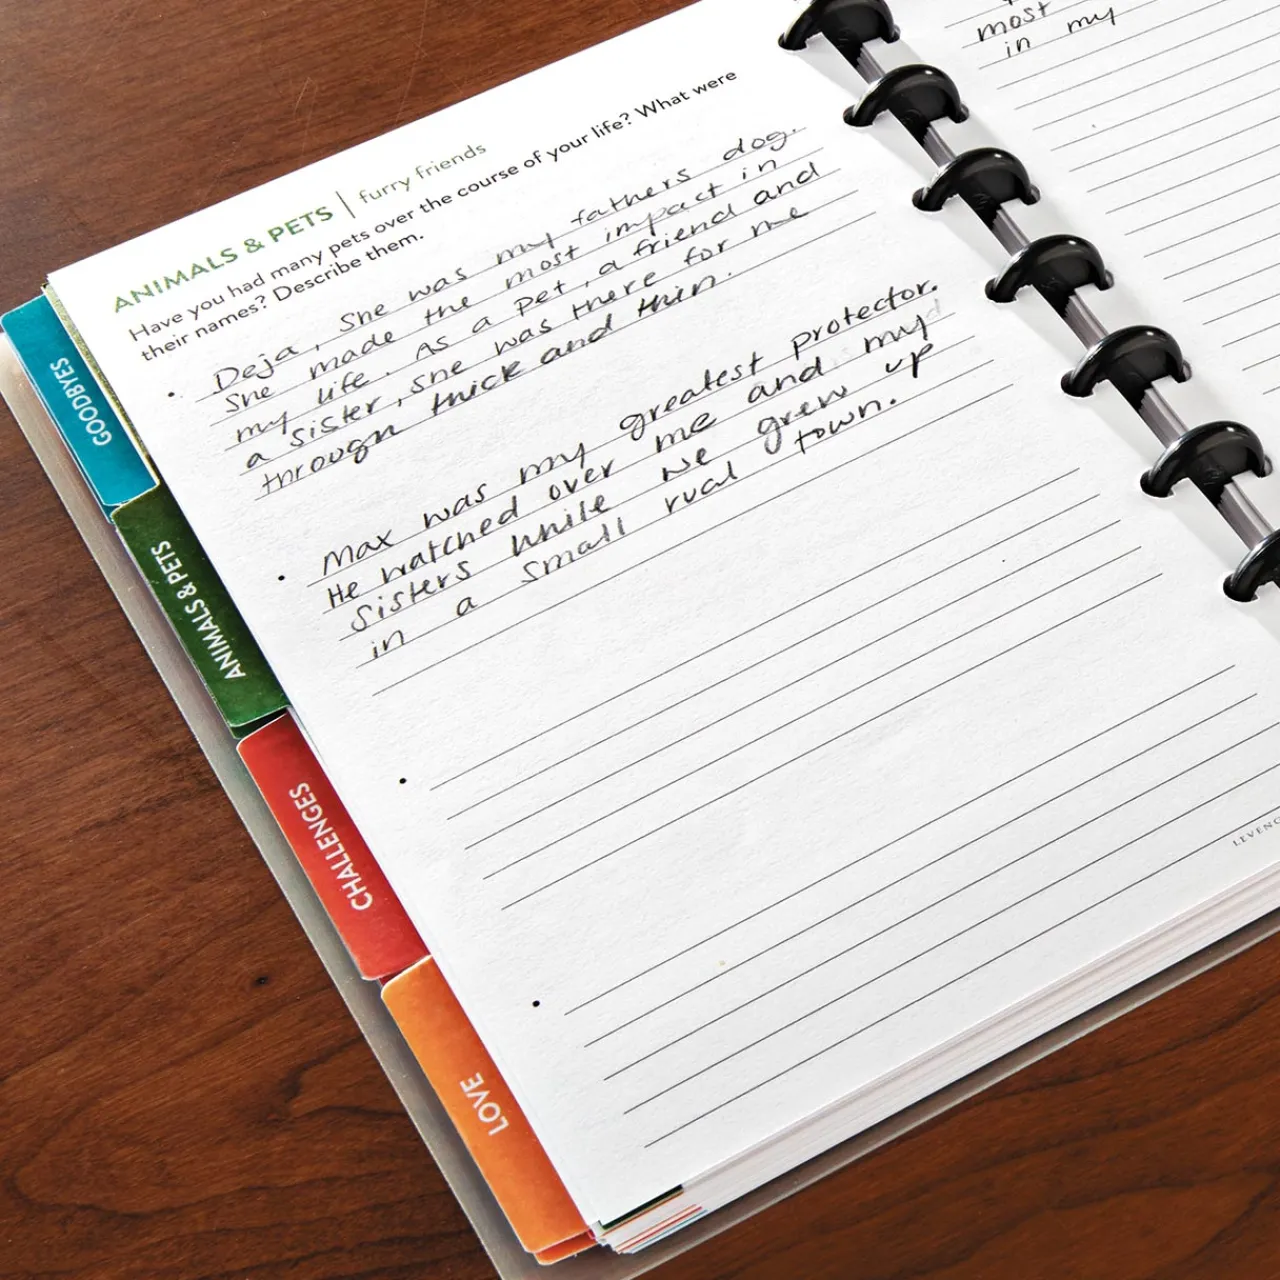 ANIMALS & PETS | furry friends
Have you had many pets over the course of your life? What were
their names? Describe them.
• Deja, She was my fathers dog.
She made the most impact in
my life. As a pet, a friend and
a sister, she was there for me
through thick and thin.
• Max was my greatest protector.
He watched over me and my
sisters while we grew up
in a small rual town.
most
in my
GOODBYES
ANIMALS & PETS
CHALLENGES
LOVE